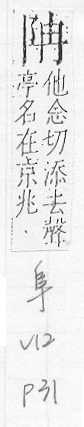 他念切添去聲
亭名在京兆
阜
V12
P31